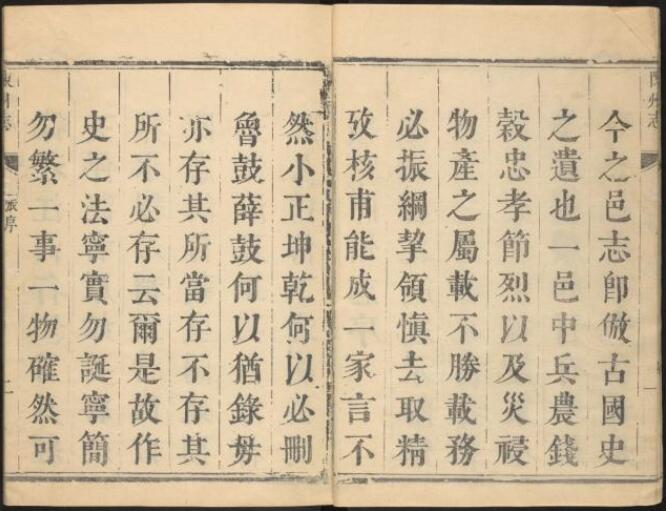 今之邑志卽倣古國史
之遺也一邑中兵農錢
穀忠孝節烈以及災祲
物產之屬載不勝載務
必振綱挈領慎去取精
攷核甫能成一家言不
然小正坤乾何以必刪
魯鼓薛鼓何以猶錄毋
亦存其所當存不存其
所不必存云爾是故作
史之法寧實勿誕寧簡
勿繁一事一物確然可